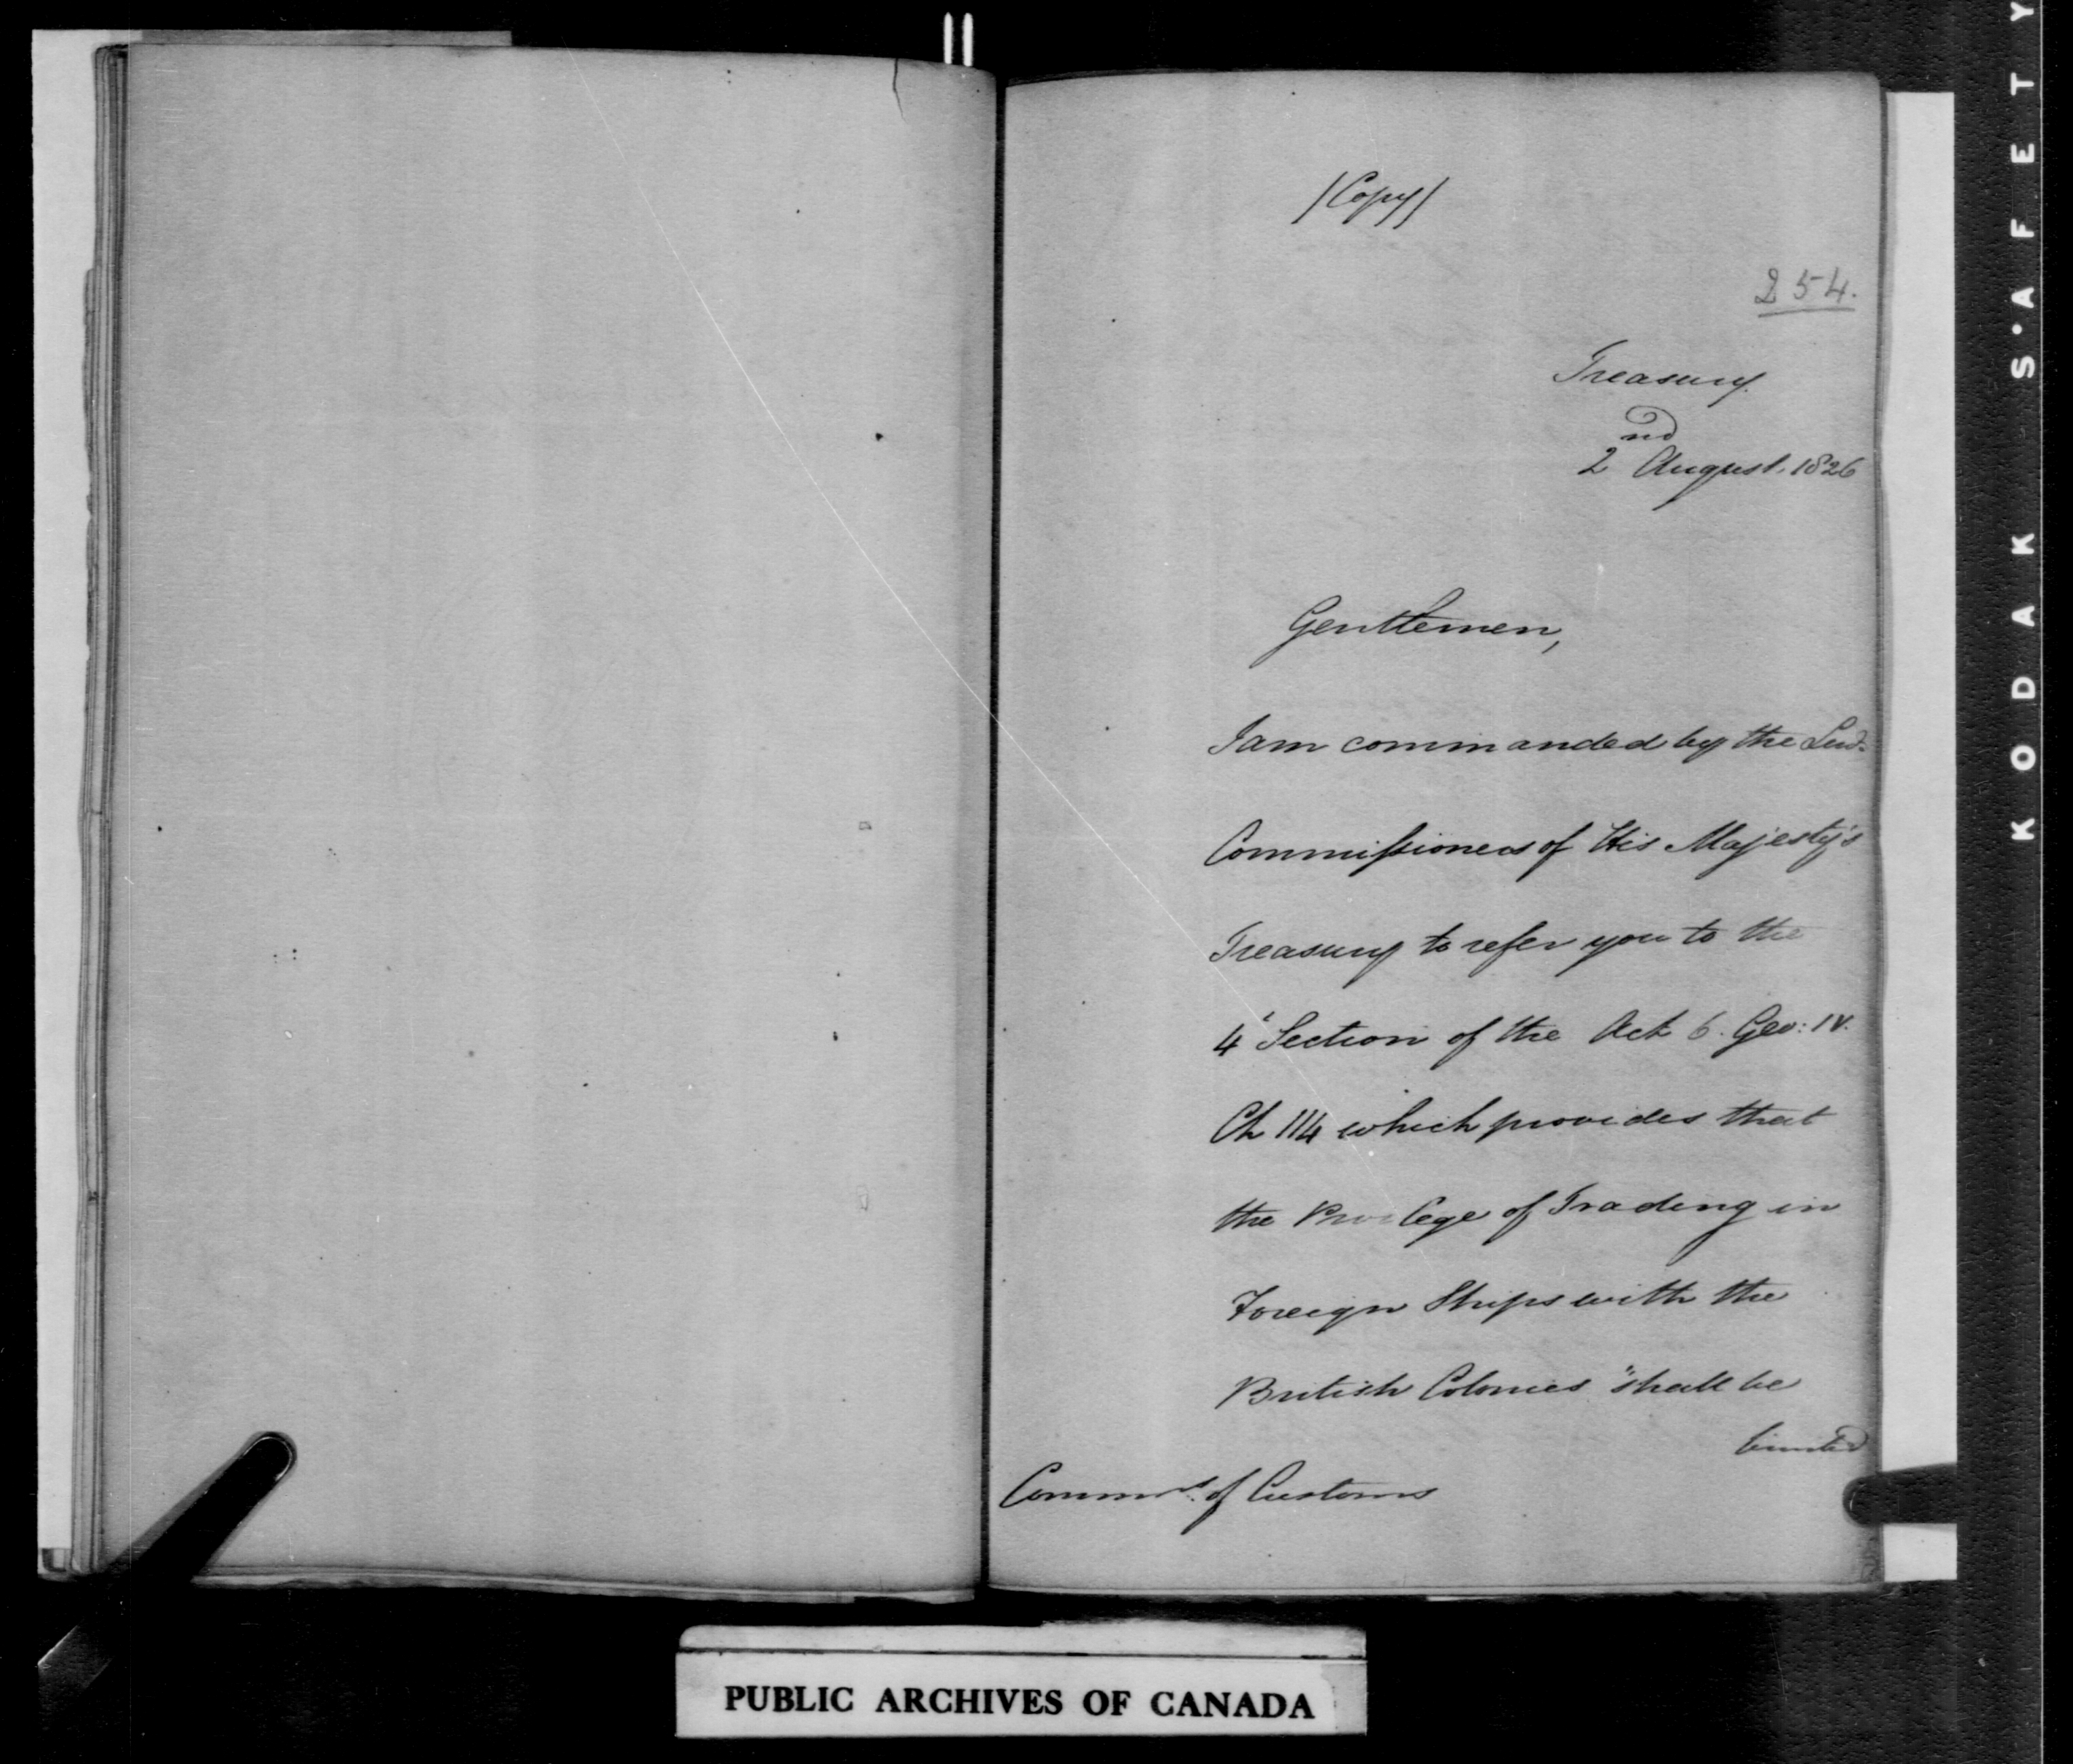 /Copy/
254.
Treasury.
2nd August. 1826
Gentlemen,
I am commanded by the
Commissioners of His Majesty's
Treasury to refer you to the
4 Section of the Act 6. Geo: IV.
Ch 114 which provides that
the Privilege of Trading in
Foreign Ships with the
British Colonies "shall be
limited
Commrs. of Customs
PUBLIC ARCHIVES OF CANADA
KODAK S·AFETY